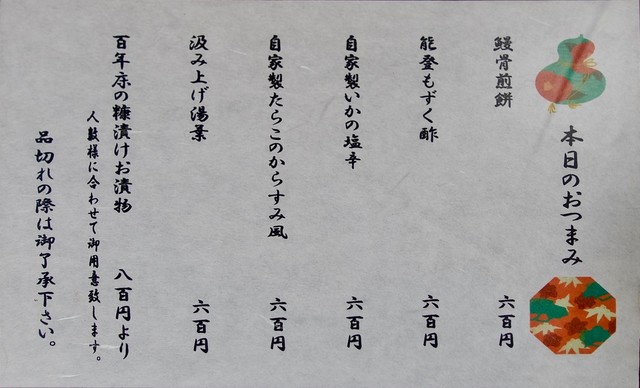 本日のおつまみ
鰻骨煎餅　六百円
能登もずく酢　六百円
自家製いかの塩辛　六百円
自家製たらこのからすみ風　六百円
汲み上げ湯葉　六百円
百年床の糠漬けお漬物　八百円より
人数様に合わせて御用意致します。
品切れの際は御了承下さい。